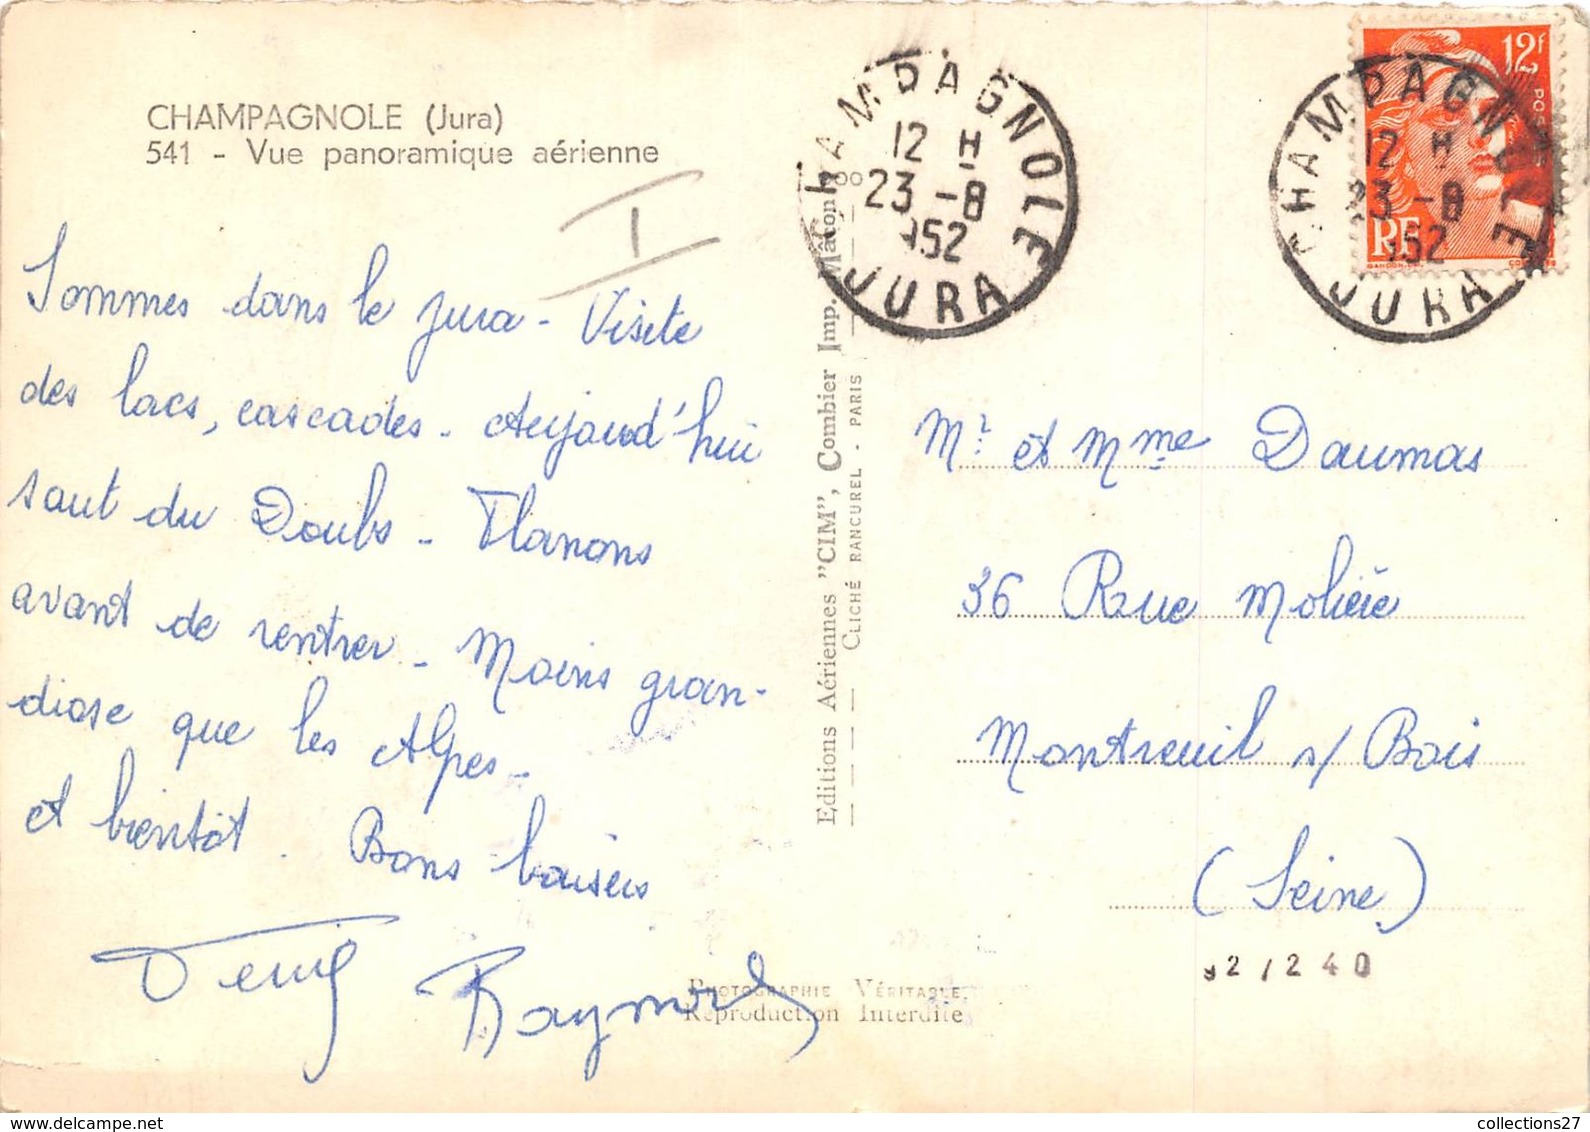 CHAMPAGNOLE (Jura)
541 - Vue panoramique aérienne
I
Sommes dans le Jura - Visite
des lacs, cascades - Aujourd'hui
saut du Doubs - Flanons
avant de rentrer - Moins gran-
diose que les Alpes -
et bientôt. Bons baisers
Raymond
Editions Aériennes "CIM", Combier Imp. Mâcon
CLICHÉ RANCUREL - PARIS
PHOTOGRAPHIE VÉRITABLE
Reproduction Interdite
CHAMPAGNOLE
12 H
23 -8
1952
JURA
12f
POSTES
RF
CHAMPAGNOLE
12 H
23 -8
1952
JURA
Mr et Mme Daumas
36 Rue Molière
Montreuil s/ Bois
(Seine)
92/240
collections27